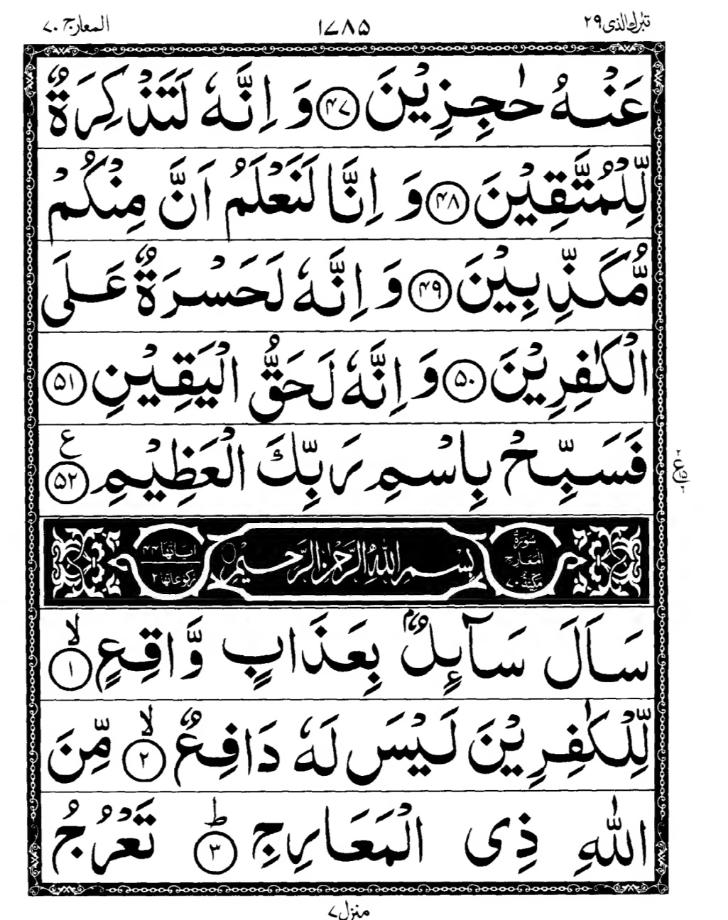 تبٰرك الذى ٢٩
١٧٨٥
المعارج ٧٠
عَنْهُ حٰجِزِيْنَ ﴿۴۷﴾ وَ اِنَّهٗ لَتَذْكِرَةٌ
لِّلْمُتَّقِيْنَ ﴿۴۸﴾ وَ اِنَّا لَنَعْلَمُ اَنَّ مِنْكُمْ
مُّكَذِّبِيْنَ ﴿۴۹﴾ وَ اِنَّهٗ لَحَسْرَةٌ عَلَى
الْكٰفِرِيْنَ ﴿۵۰﴾ وَ اِنَّهٗ لَحَقُّ الْيَقِيْنِ ﴿۵۱﴾
فَسَبِّحْ بِاسْمِ رَبِّكَ الْعَظِيْمِ ﴿۵۲﴾ ع
سُوْرَةُ الْمَعَارِجِ مَكِّيَّةٌ ٧٠
بِسْمِ اللّٰهِ الرَّحْمٰنِ الرَّحِيْمِ
اٰيَاتُهَا ۴۴
رُكُوْعَاتُهَا ۲
سَاَلَ سَآئِلٌۢ بِعَذَابٍ وَّاقِعٍ ۙ﴿۱﴾
لِّلْكٰفِرِيْنَ لَيْسَ لَهٗ دَافِعٌ ۙ﴿۲﴾ مِّنَ
اللّٰهِ ذِى الْمَعَارِجِ ؕ﴿۳﴾ تَعْرُجُ
منزل ٧